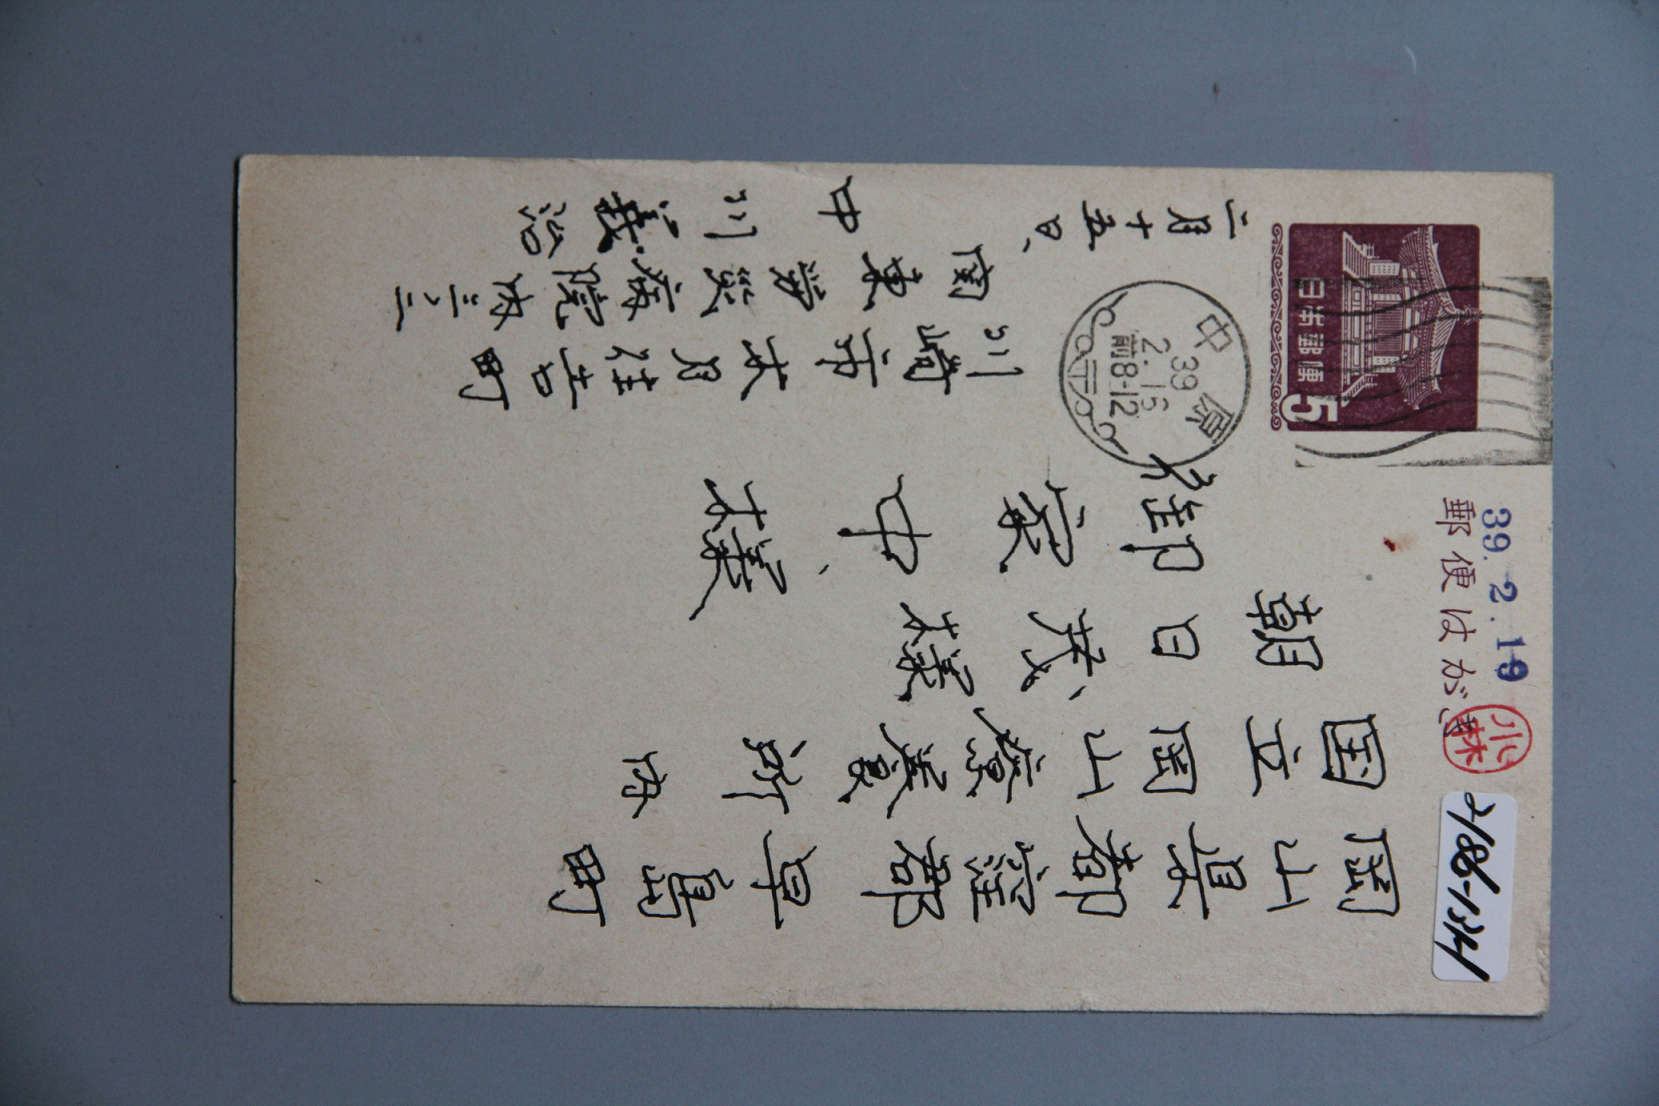 郵便はがき
39.2.19
小林
日本郵便
5
中原
39
2.16
前8-12
岡山県都窪郡早島町
国立岡山療養所内
朝日茂、様
御家中、様
二月十五日、
川崎市木月住吉町
関東労災病院内三二
中川義治